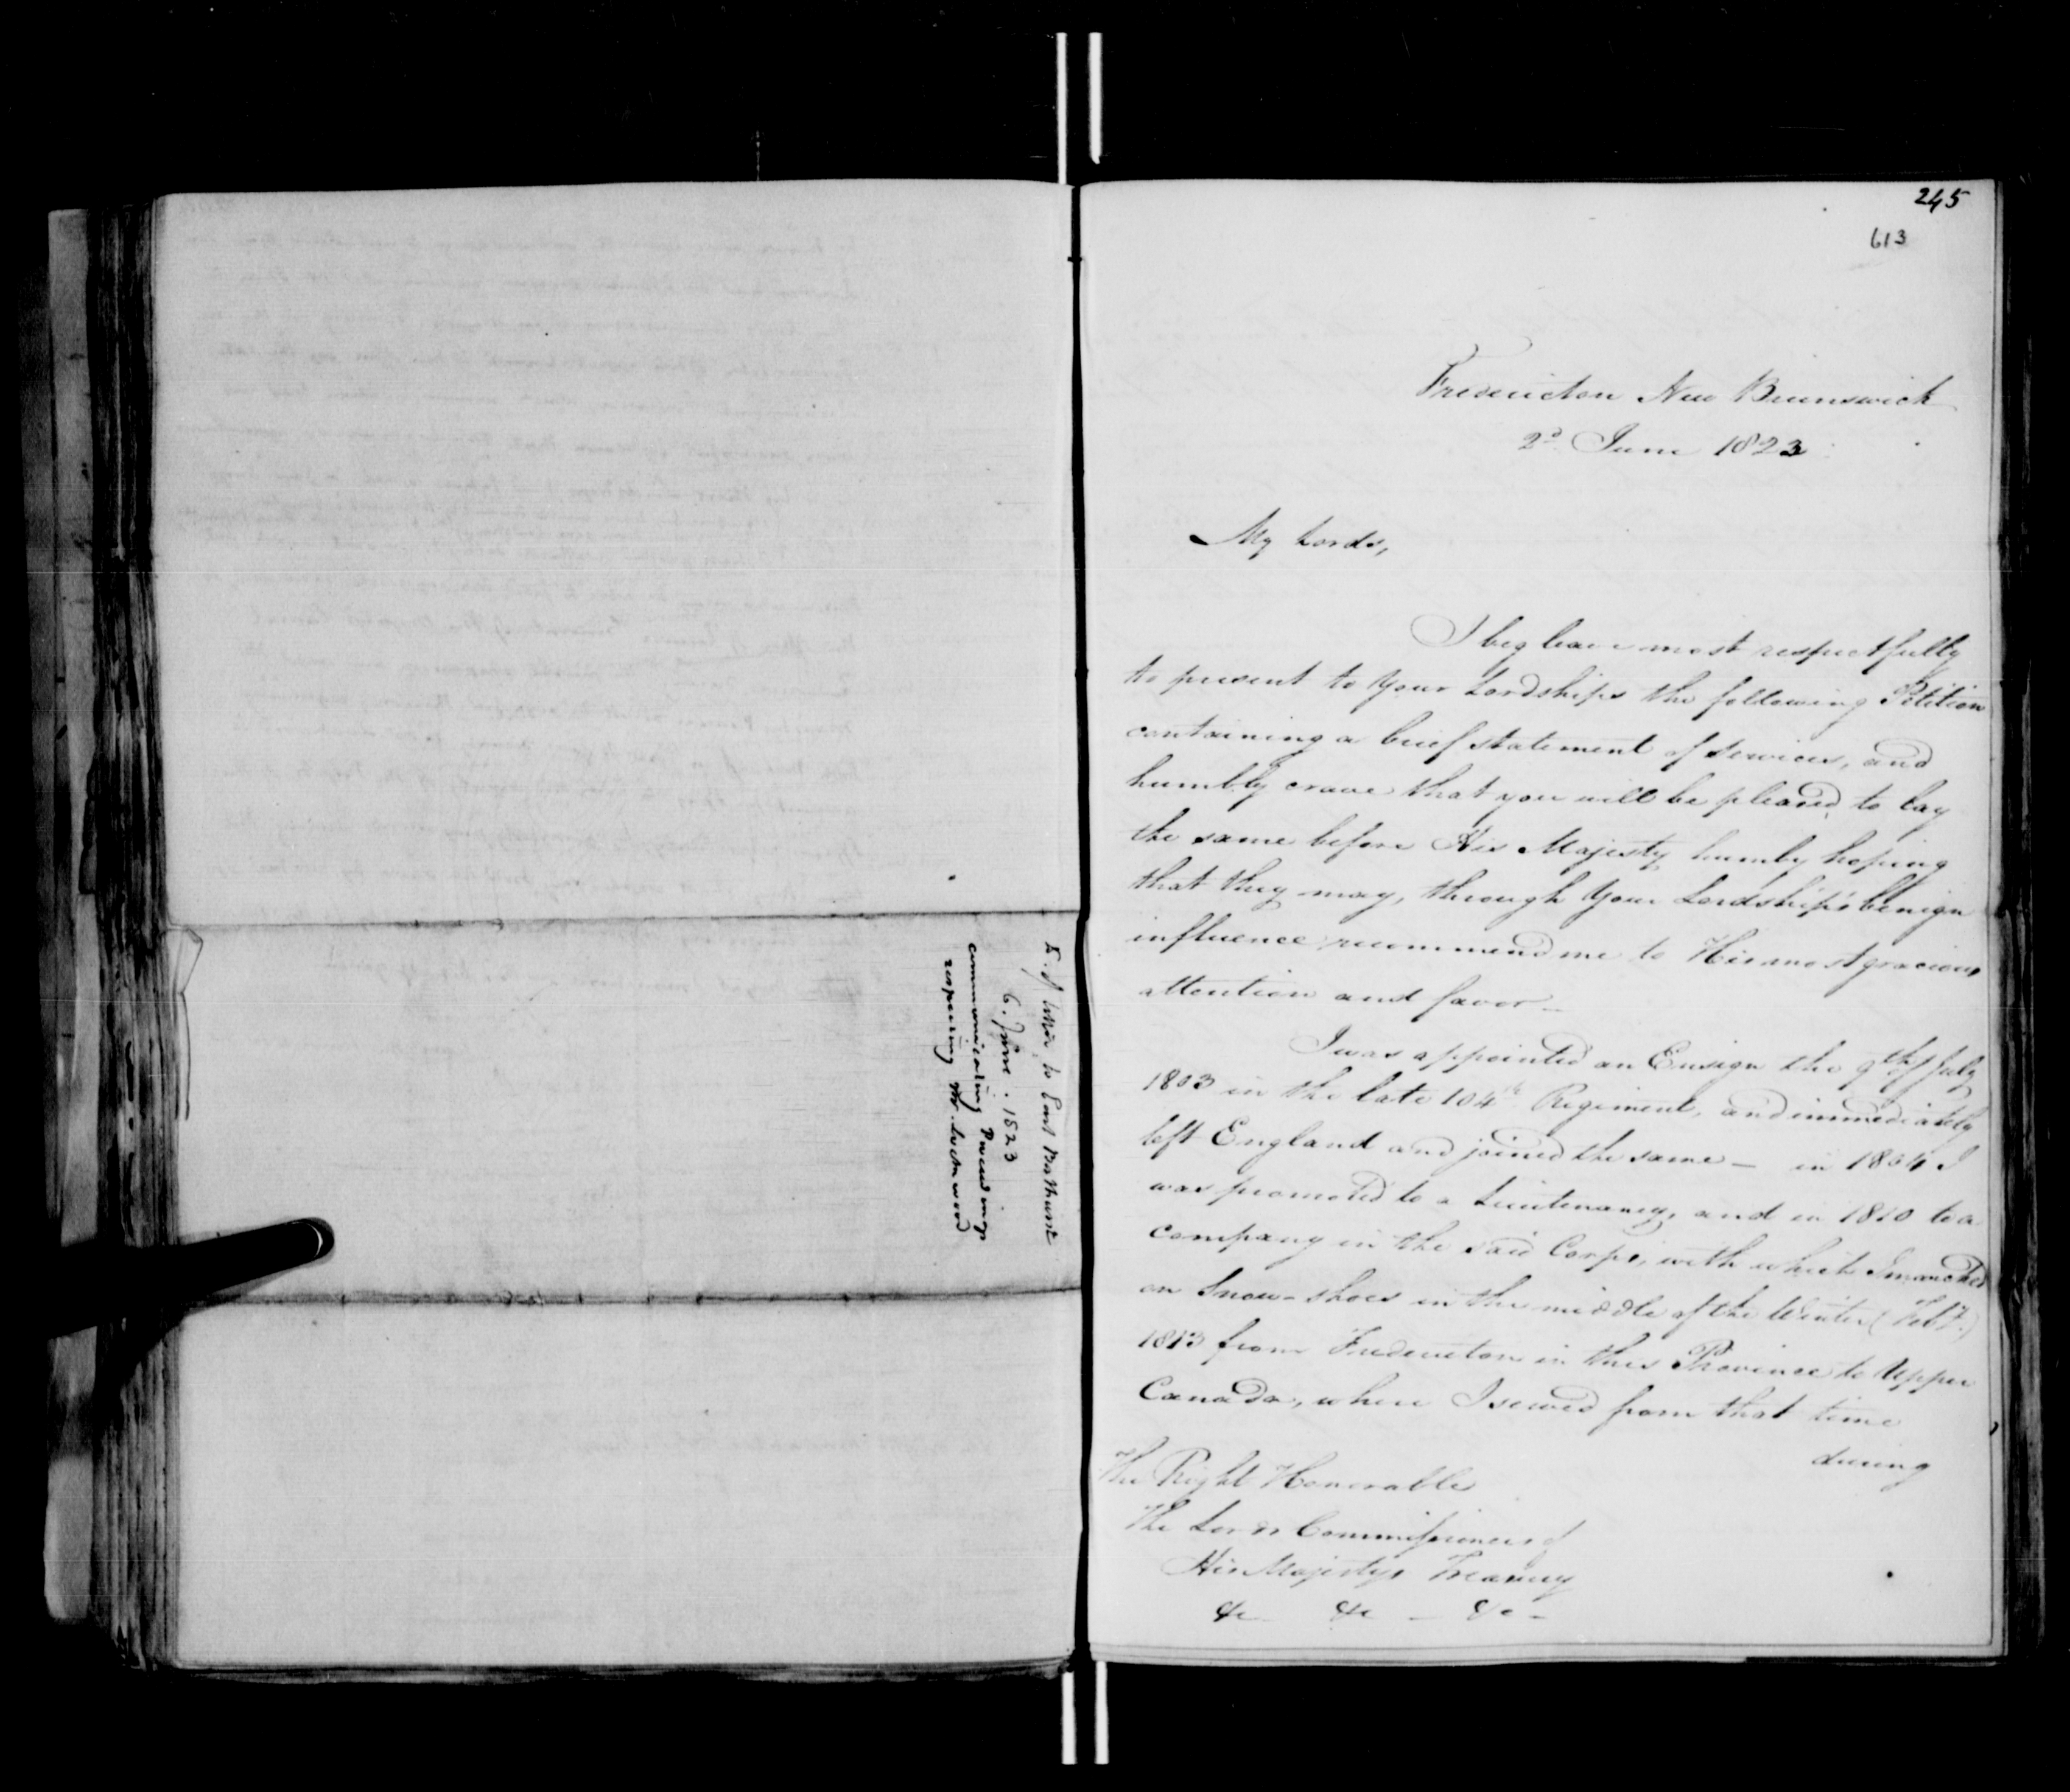 to Earl Bathurst
6. June. 1823
communicating Proceedings
respecting Mr. Lockwood
245
613
Fredericton New Brunswick
2d June 1823
My Lords,
I beg leave most respectfully
to present to Your Lordships the following Petition
containing a brief statement of services, and
humbly crave that you will be pleased to lay
the same before His Majesty, humbly hoping
that they may, through Your Lordship's benign
influence recommend me to His most gracious
attention and favor —
I was appointed an Ensign the 9th of July
1803 in the late 104th Regiment, and immediately
left England and joined the same — in 1804 I
was promoted to a Lieutenancy, and in 1810 to a
company in the said Corps, with which I marched
on Snow-shoes in the middle of the Winter (Feby.)
1813 from Fredericton in this Province to Upper
Canada, where I served from that time
during
The Right Honorable
The Lords Commissioners of
His Majestys Treasury
&c &c — &c —